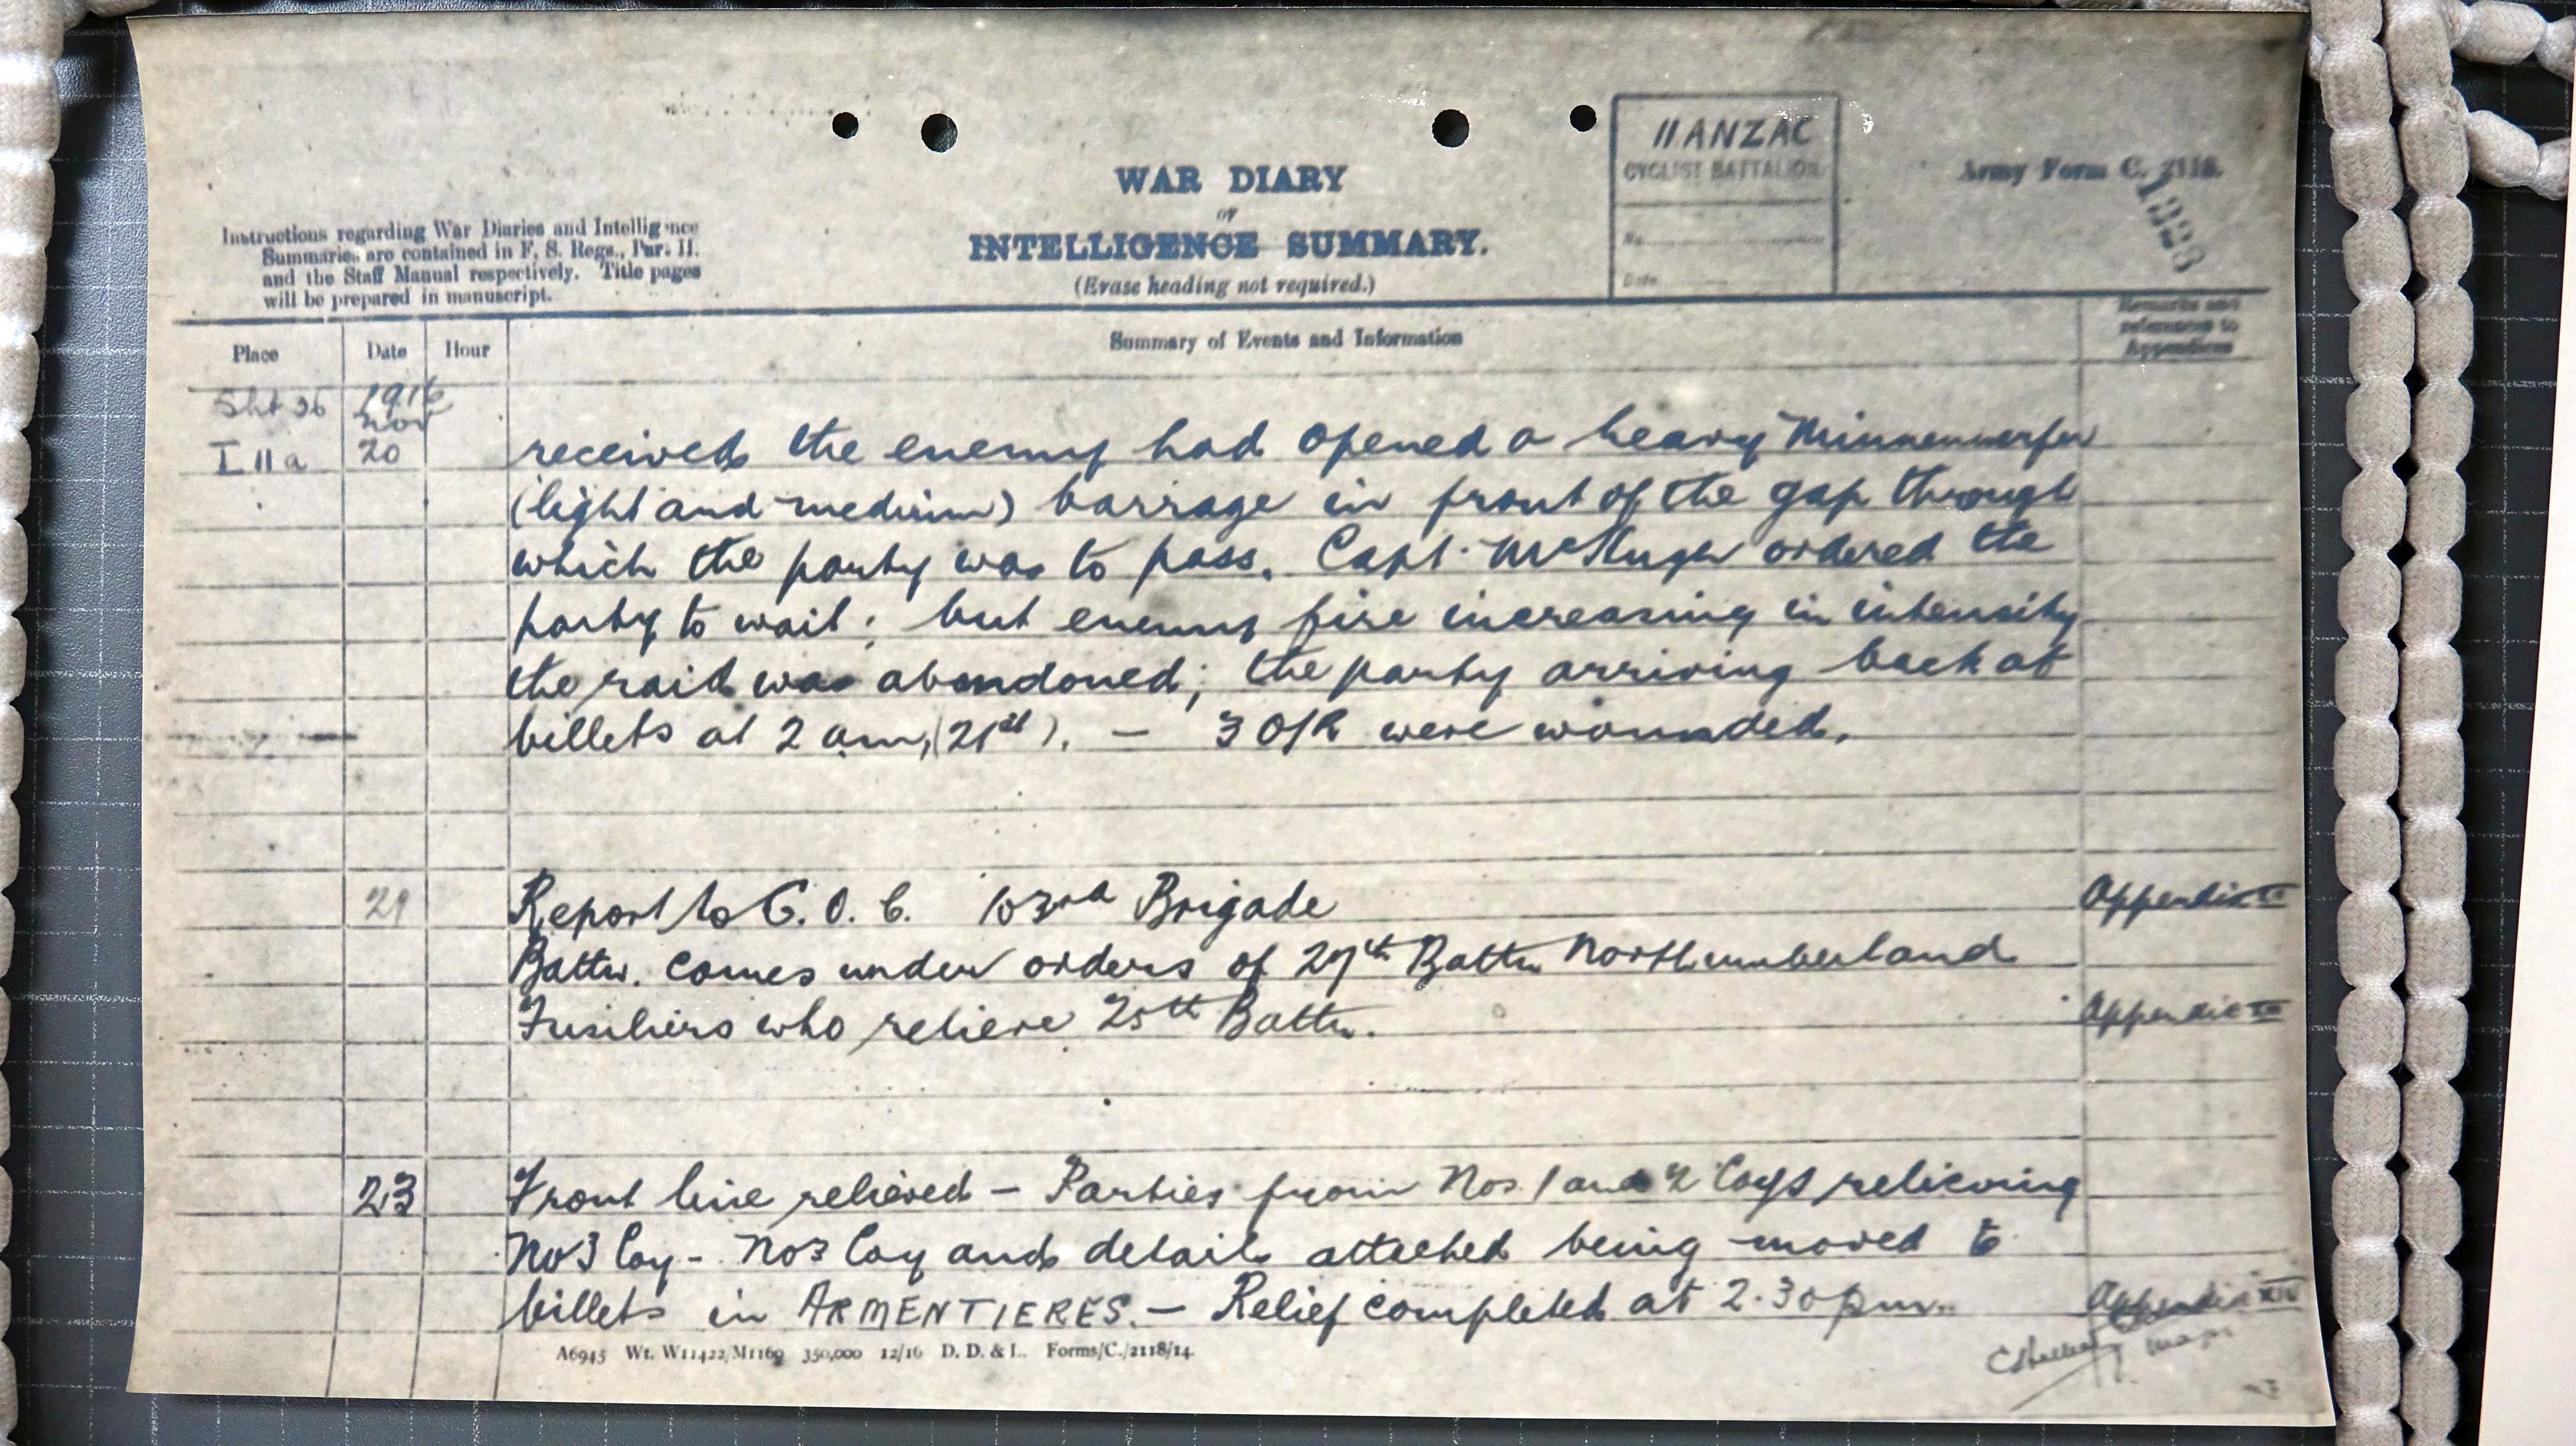 II ANZAC
CYCLIST BATTALION.
No.
Date
Army Form C. 2118.
WAR DIARY
or
INTELLIGENCE SUMMARY.
(Erase heading not required.)
Instructions regarding War Diaries and Intelligence
Summaries are contained in F. S. Regs., Par. II.
and the Staff Manual respectively. Title pages
will be prepared in manuscript.
Place Date Hour Summary of Events and Information Remarks and
references to
Appendices
Sht 36 1916
Nov
I 11 a 20 received the enemy had opened a heavy Minnenwerfer
(light and medium) barrage in front of the gap through
which the party was to pass. Capt. McHugh ordered the
party to wait; but enemy fire increasing in intensity
the raid was abandoned; the party arriving back at
billets at 2 am, (21st). — 3 O/R were wounded.
21 Report to G. O. C. 103rd Brigade Appendix
Battn. comes under orders of 27th Battn Northumberland
Fusiliers who relieve 25th Battn. Appendix
23 Front line relieved — Parties from Nos. 1 and 2 Coys relieving
No 3 Coy - No 3 Coy and details attached being moved to
billets in ARMENTIERES. — Relief completed at 2.30 pm. Appendix XIV
Major
A6945 Wt. W11422/M1160 350,000 12/16 D. D. & L. Forms/C./2118/14.